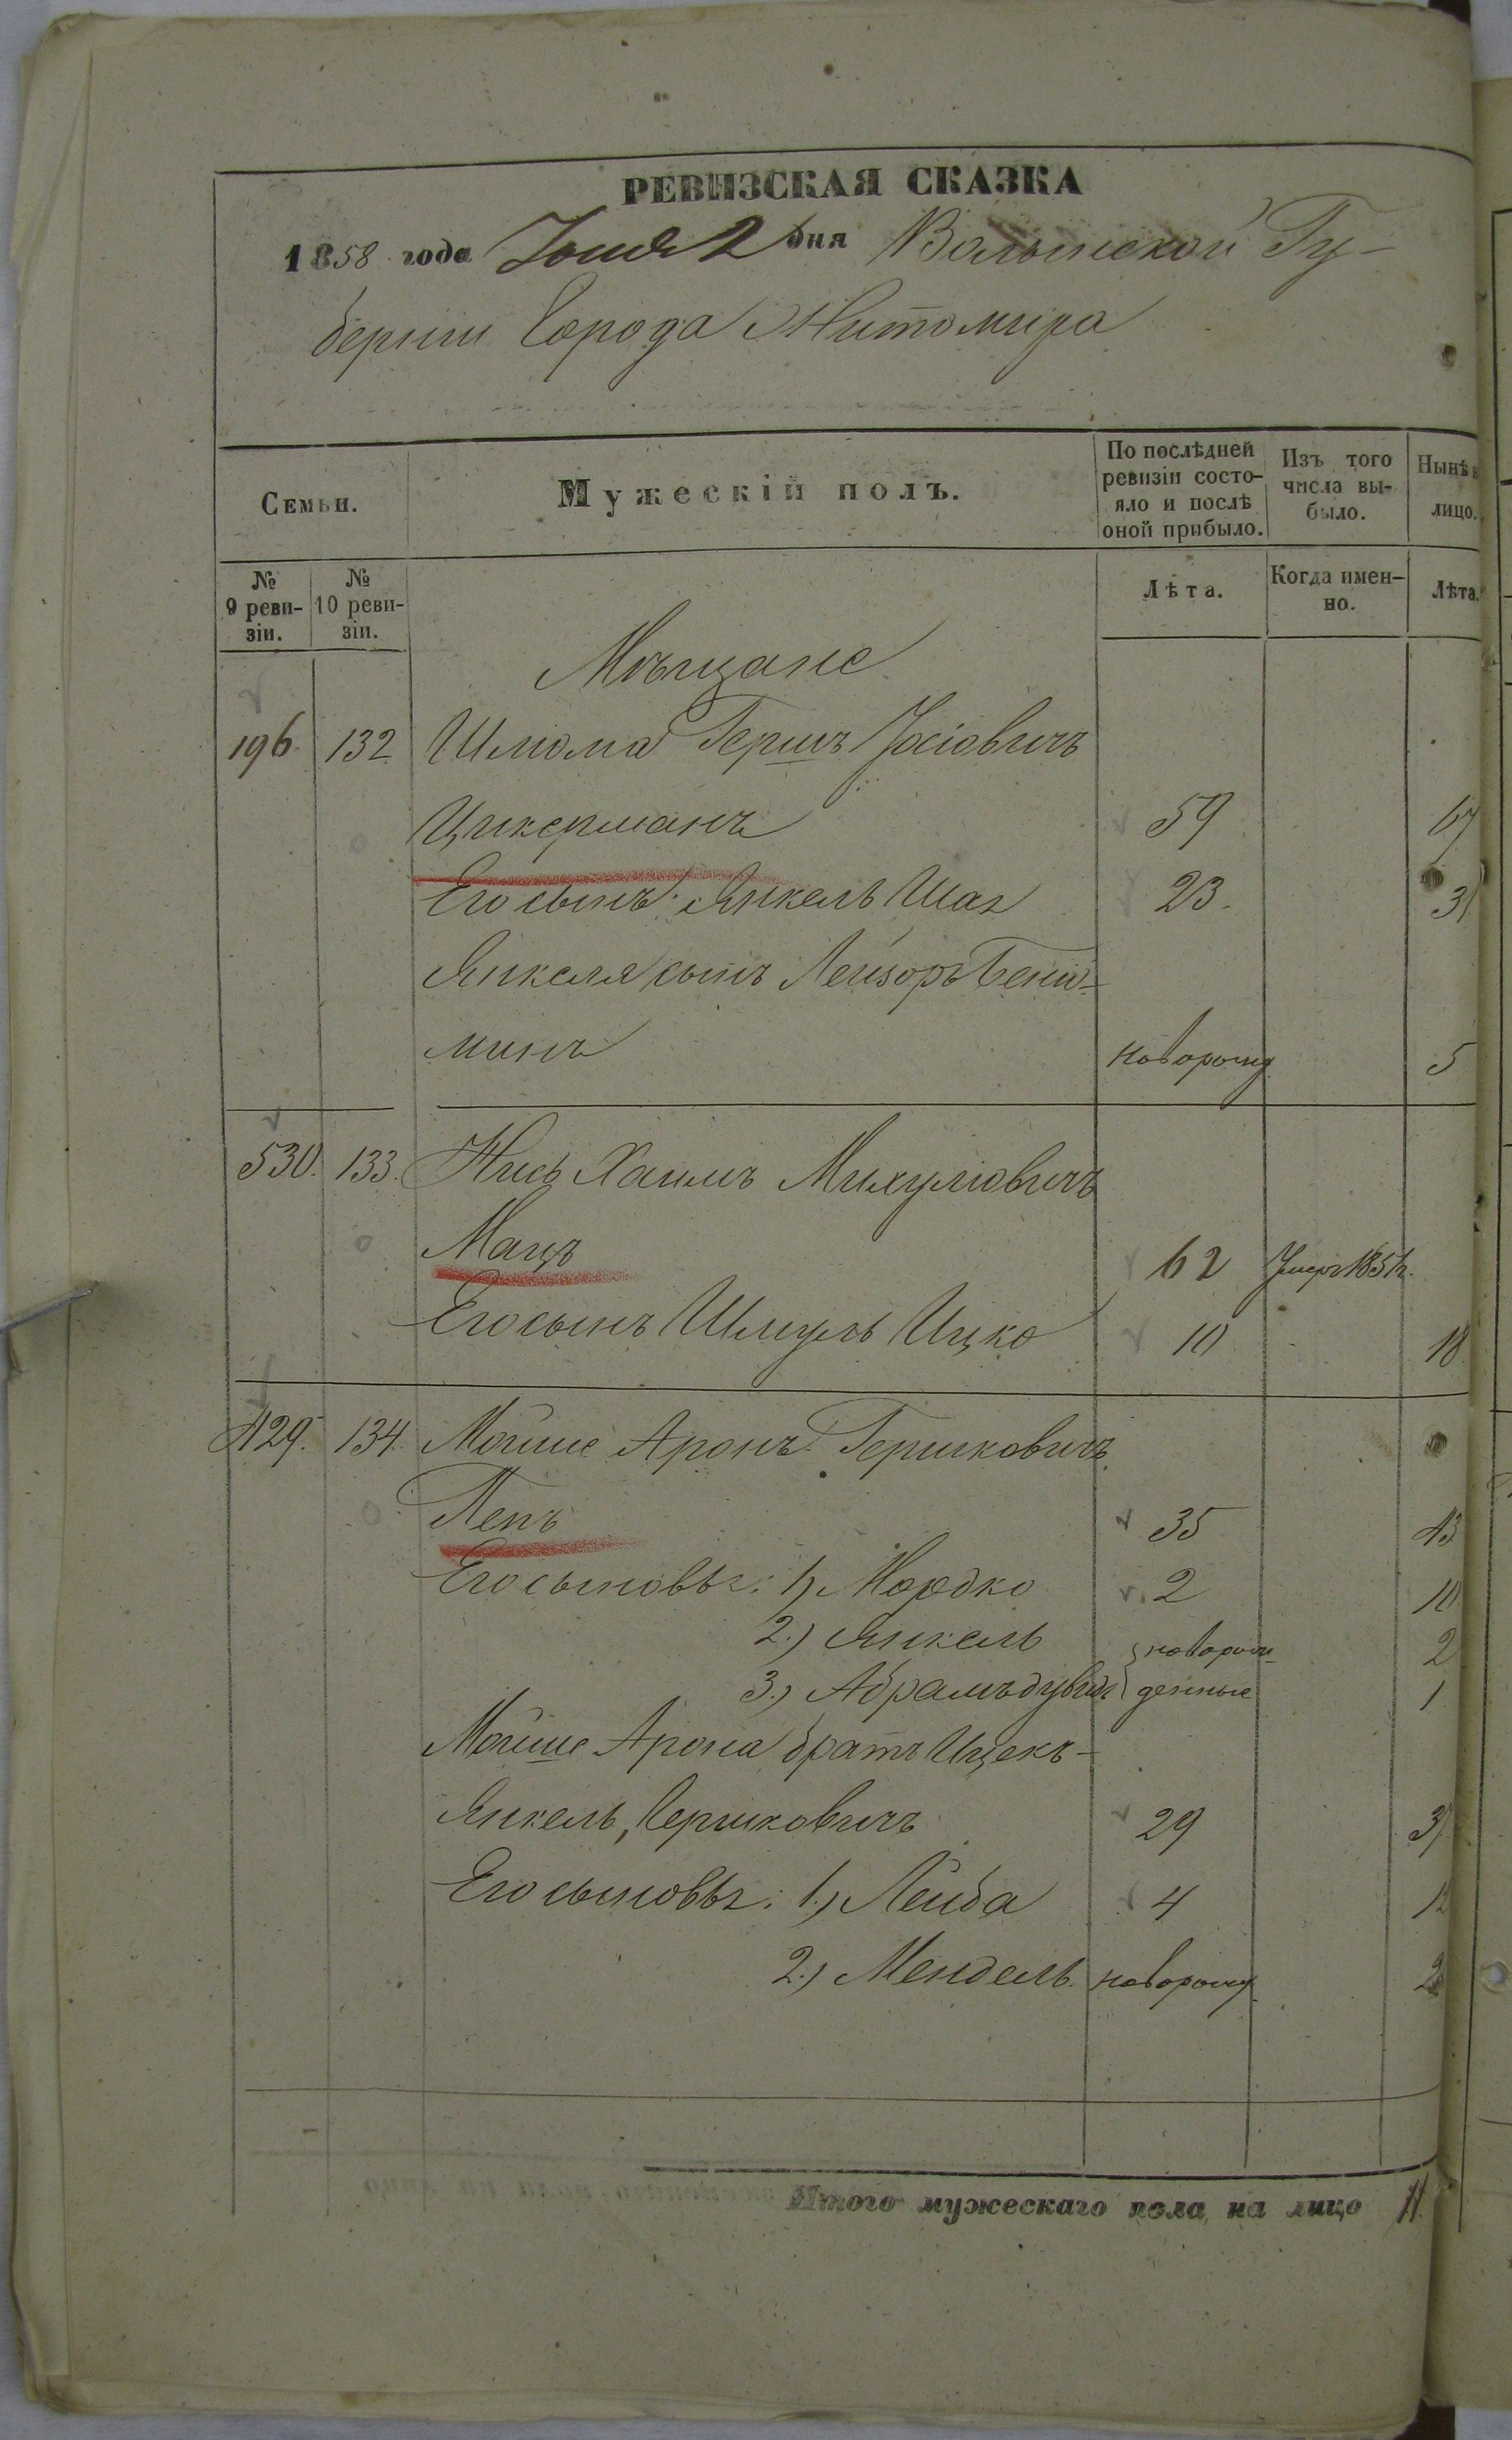 РЕВИЗСКАЯ СКАЗКА
1858 года Іюня 2 дня Волынской Гу-
берніи Города Житомира
Семьи.
Мужескій полъ.
По послѣдней ревизіи состо-
яло и послѣ оной прибыло.
Изъ того числа вы-
было.
Нынѣ
лицо.
№ 9 реви-
зіи.
№ 10 реви-
зіи.
Лѣта.
Когда имен-
но.
Лѣта.
Мѣщане
196. 132 Шлиома Гершъ Іосіовичъ
Цикерманъ 59 67
Его сынъ: Янкель Шая 23. 31
Янкеля сынъ Лейзоръ Беніо-
минъ новорожд. 5
530. 133. Нись Хаимъ Михулиовичъ
Мацъ 62 Умеръ
Его сынъ Шмуль Ицко 10 18
429. 134. Мойше Аронъ Гершковичъ
35 43
Его сыновья: 1.) Мордко 2 10
2.) Янкель новорож- 2
3.) Абрамъ Дувидъ денные 1
Мойше Арона братъ Ицекъ-
Янкель, Гершковичъ 29 37
Его сыновья: 1.) Лейба 4 12
2.) Мендель новорожд. 2
Итого мужескаго пола на лицо 11.